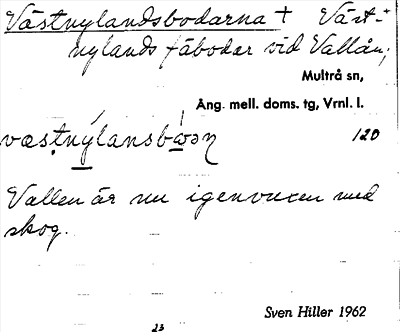 Västnylandsbodarna + Väst-
nylands fäbodar vid Vallån;
Multrå sn,
Ång. mell. doms. tg, Vrnl. l.
120
Vallen är nu igenvuxen med
skog.
Sven Hiller 1962
23